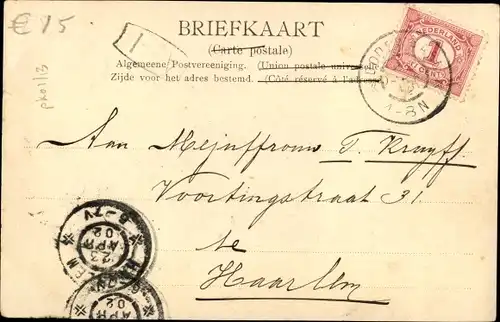 € 15
pk01/13
BRIEFKAART
(Carte postale)
Algemeene Postvereeniging. (Union postale universelle)
Zijde voor het adres bestemd. (Côté réservé à l'adresse)
NEDERLAND
1
CENT
4-8N
Aan Mejuffrouw T. Kruyff.
Voortingstraat 31.
te
Haarlem
5-7V
23
APR
02
HAARLEM
APR
02